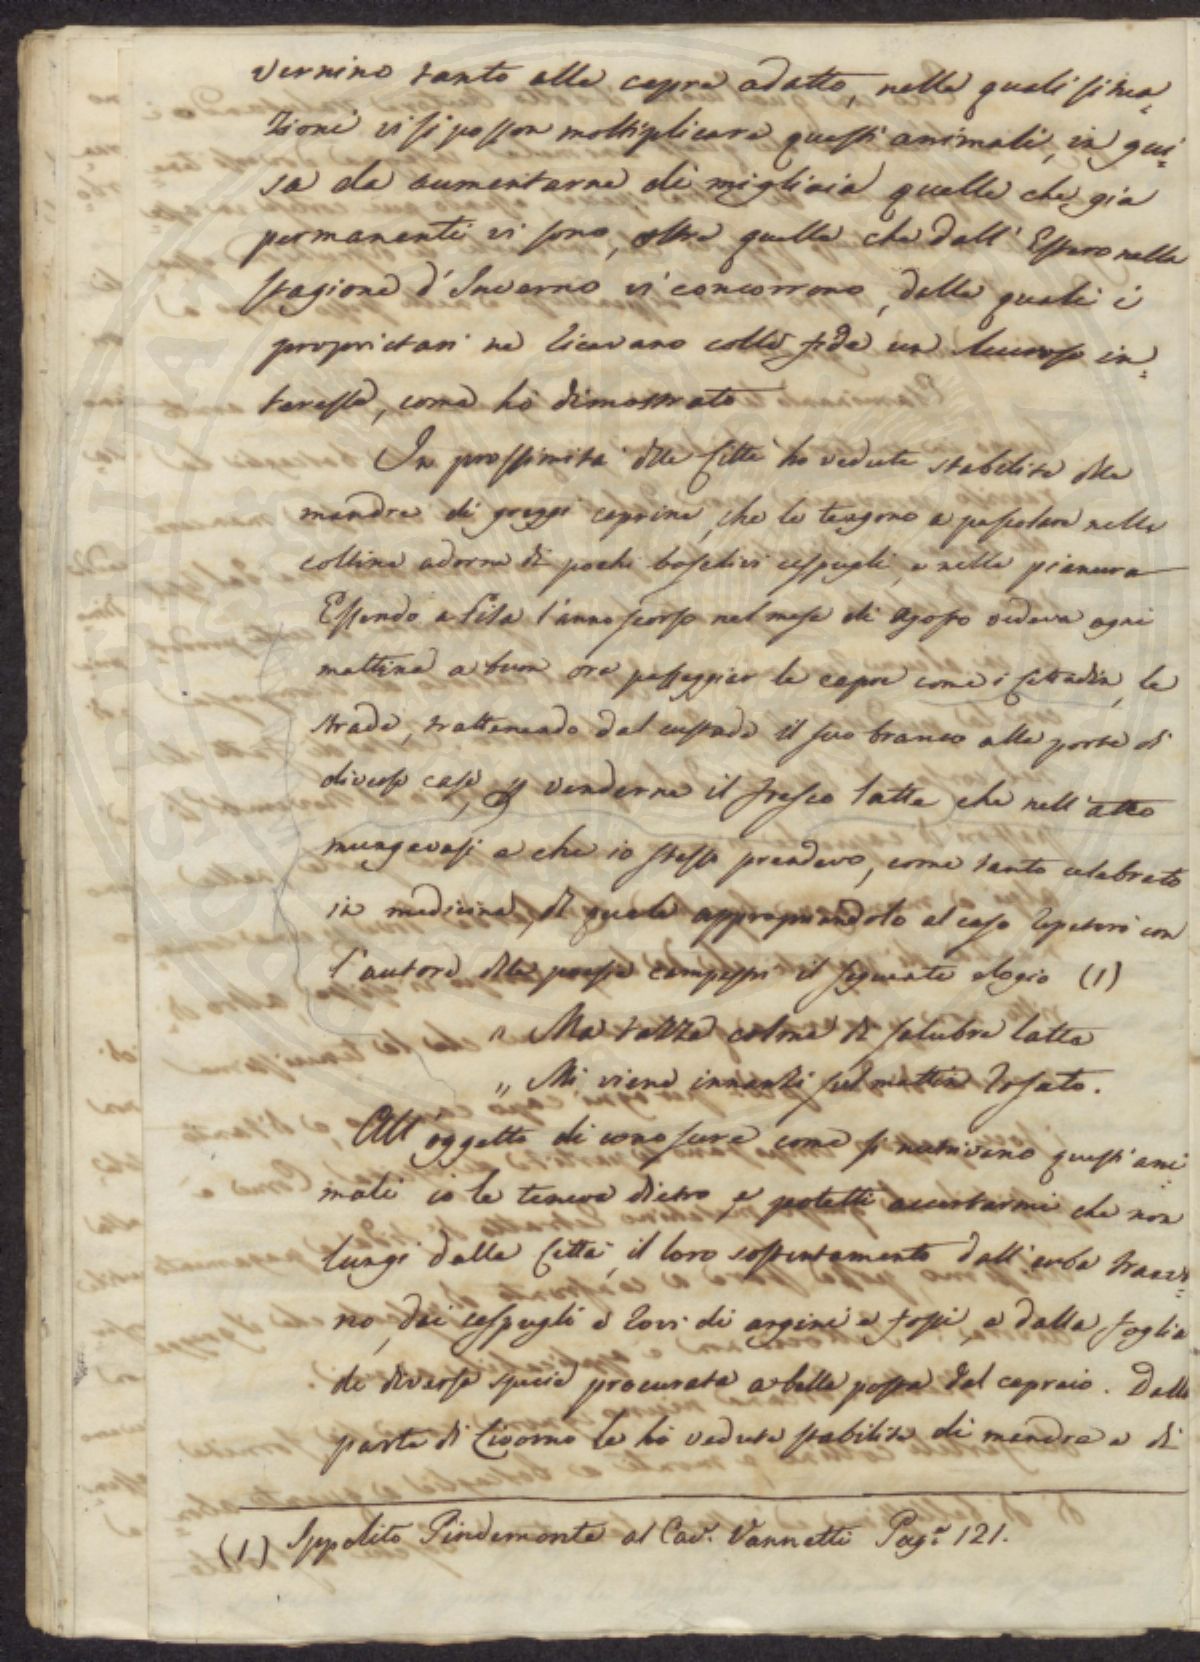 vernino tanto alle capre adatto, nelle quali situa=
zioni vi si posson moltiplicare questi animali, in gui=
sa da aumentarne di migliaia quelle che già
permanenti vi sono, oltre quelle che dall' Estero nella
stagione d' Inverno vi concorrono, dalle quali i
proprietari ne ricavano colle fide un lucroso in=
teresse, come hò dimostrato
In prossimità dlle Città ho vedute stabilite dlle
mandre di greggi caprine, che le tengono a pascolare nelle
colline adorne di pochi boschivi cespugli, e nelle pianure
Essendo a Pisa l'anno scorso nel mese di Agosto vedeva ogni
mattina a buon ora passeggiar le capre come i Cittadin, le
strade, trattenendo dal custode il suo branco alle porte di
diverse case, p venderne il fresco latte che nell' atto
mungevasi e che io stesso prendevo, come tanto celebrato
in medicina, di quale appropriandolo al caso repeterò con
l'autore dlle poesie campestri il seguente elogio (1)
" Ma tazza colma di salubre latte
" Mi viene innanzi sul mattin rosato.
All' oggetto di conoscere come si nutrivano questi ani=
mali io le teneva dietro e potetti accertarmi che non
lungi dalle Città, il loro sostentamento dall' erba traev=
no, dai cespugli e rovi di argini e fossi, e dalla foglia
di diverse specie procurata a bella posta dal capraio. Dalla
parte di Livorno le hò vedute stabilite di mandre e di
(1) Ippolito Pindemonte al Cav.r Vannetti Pag.a 121.